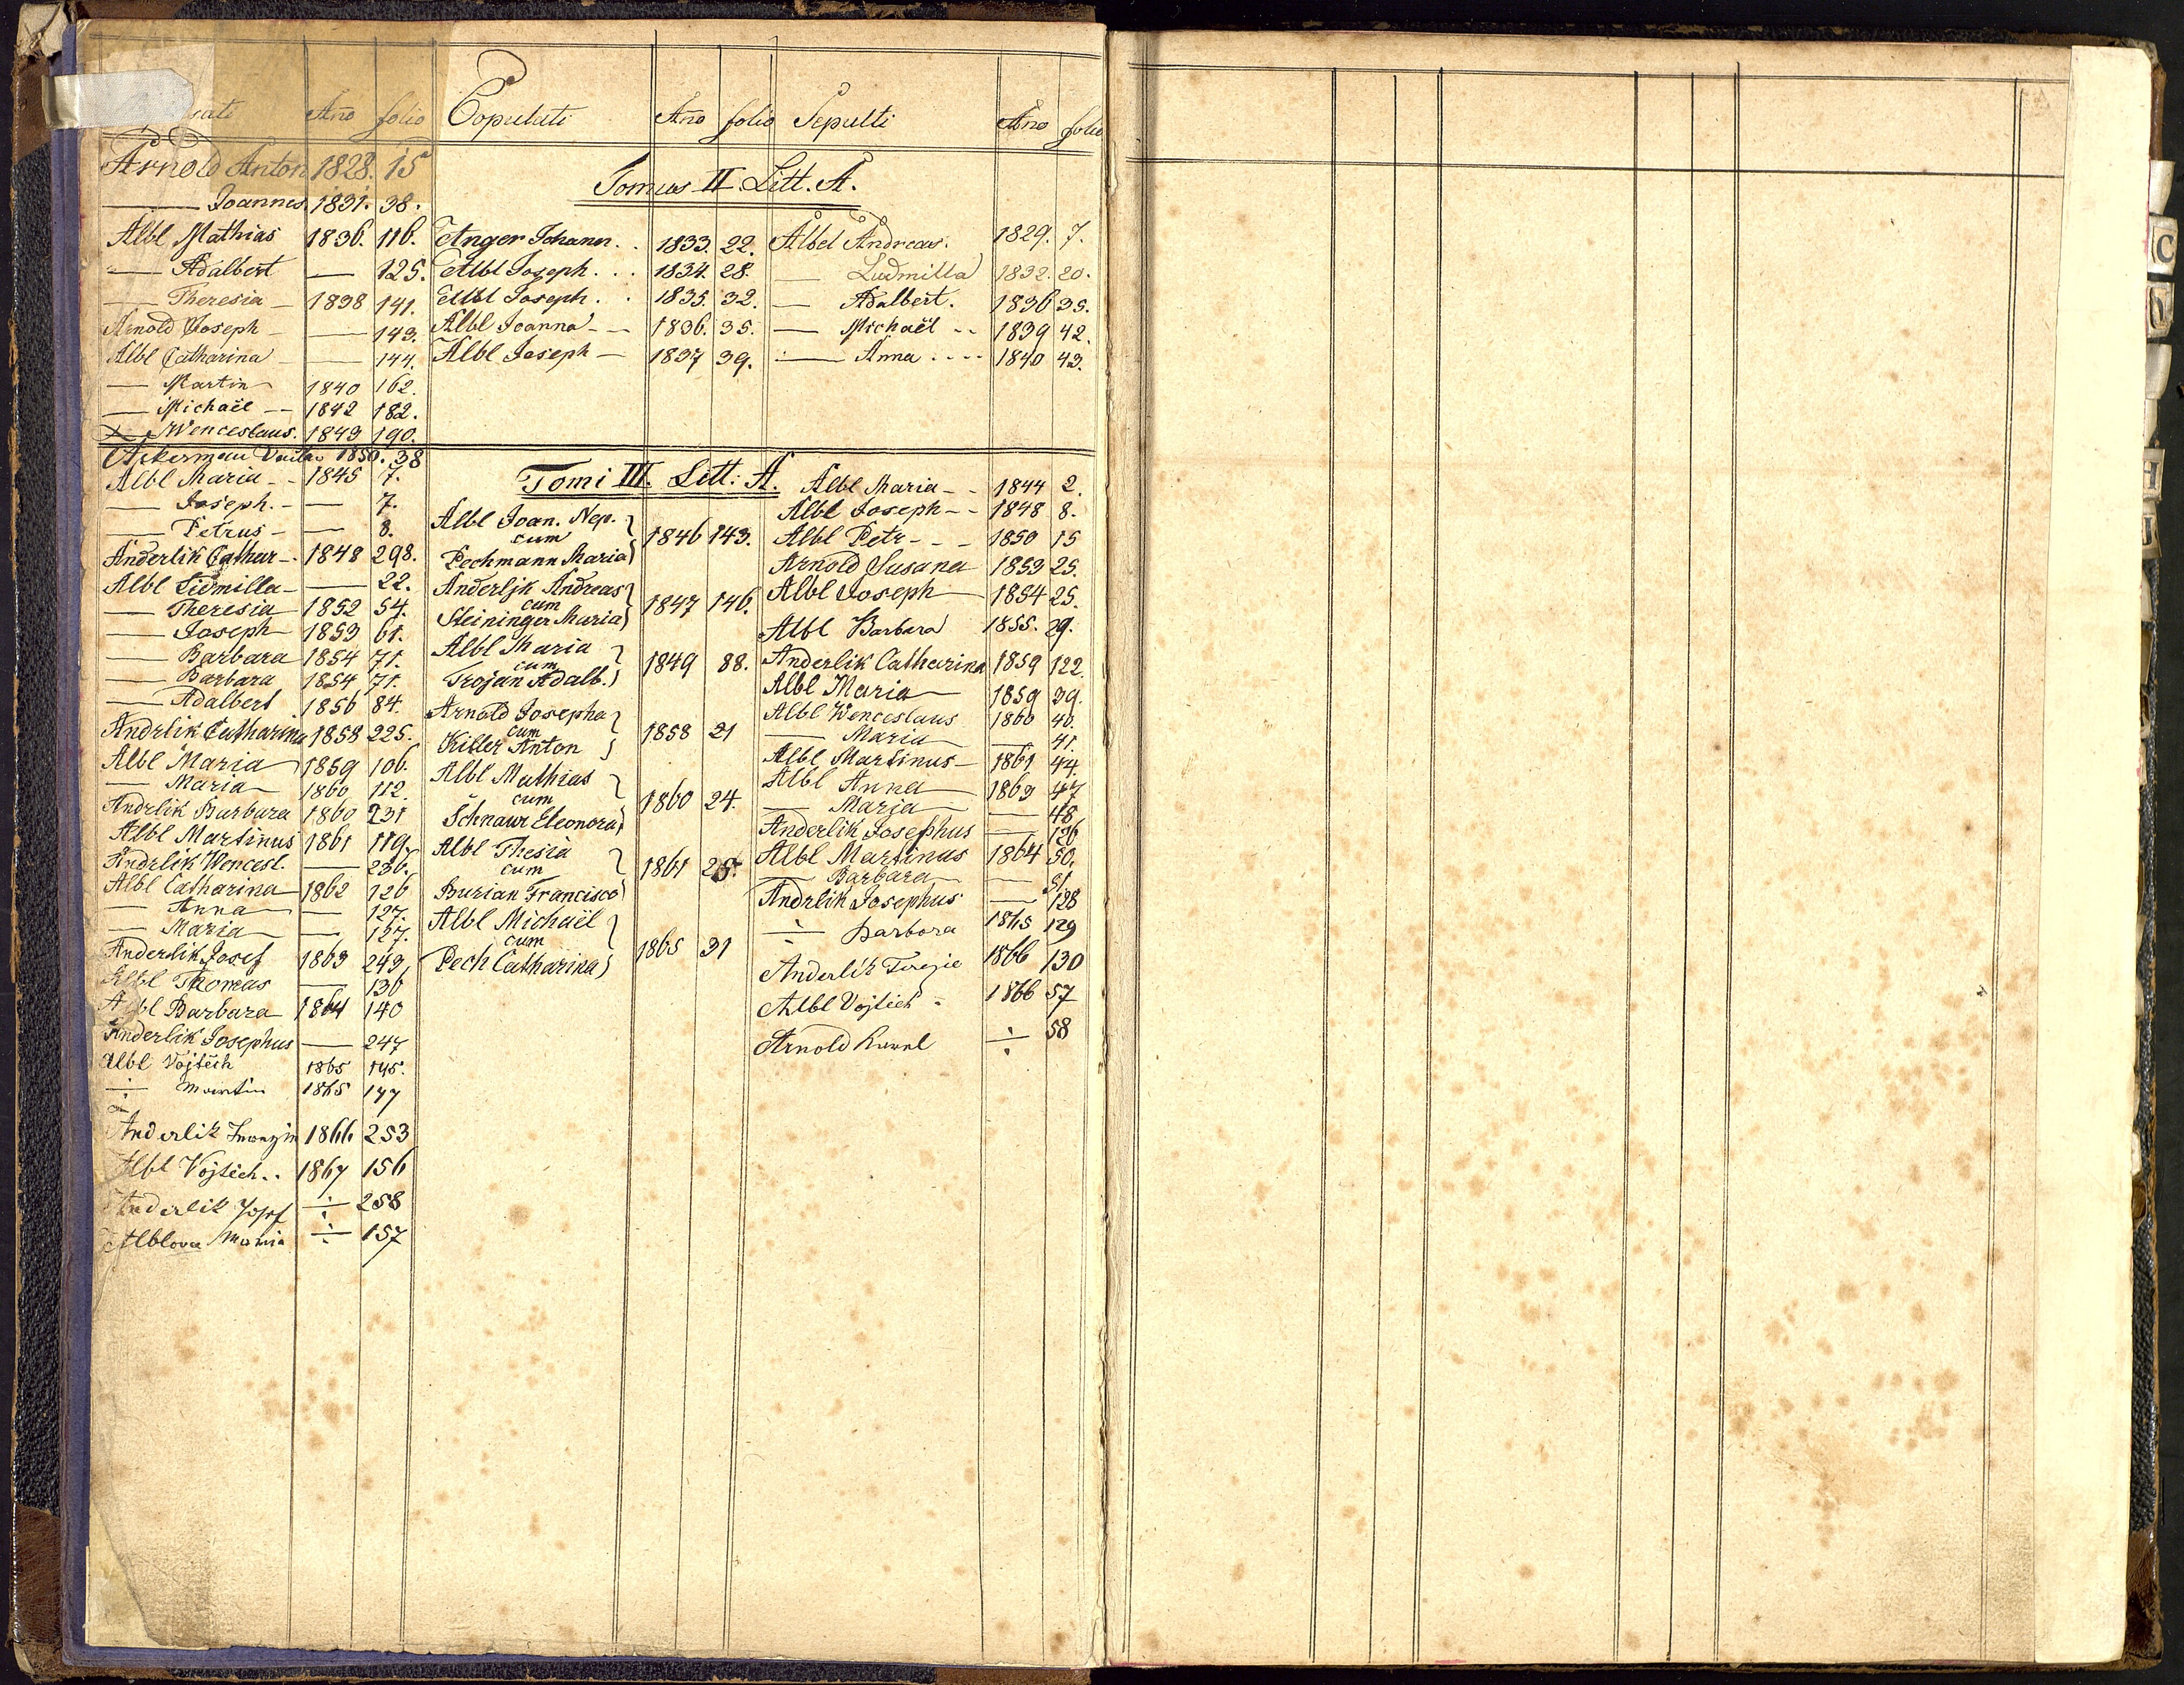 Ano folio Copulati Ano folio Sepulti Ano folio
Arnold Anton 1828. 15
Tomus II. Litt. A.
—— Joannes. 1831. 38.
Albl Mathias 1836. 116.
—— Adalbert —— 125.
—— Theresia — 1838 141.
Arnold Joseph — —— 143.
Albl Catharina — —— 144.
—— Martin 1840 162.
—— Michaël -- 1842 182.
—— Wenceslaus. 1843 190.
Anger Johann.. 1833. 22.
Albl Joseph... 1834. 28.
Albl Joseph.. 1835. 32.
Albl Joanna -- 1836. 35.
Albl Joseph — 1837 39.
Albel Andreas. 1829. 7.
—— Ludmilla 1832. 20.
—— Adalbert. 1836 35.
—— Michaël -- 1839 42.
—— Anna .... 1840 43.
Akerman 1850. 38
Albl Maria -- 1845 7.
—— Joseph. - —— 7.
—— Petrus - —— 8.
Anderlik Cathar -. 1848 298.
Albl Lidmilla - —— 22.
—— Theresia 1852 54.
—— Joseph 1853 61.
—— Barbara 1854 71.
—— Barbara 1854 71.
—— Adalbert 1856 84.
Andrlik Catharina 1858 225.
Albl Maria 1859 106.
—— Maria 1860 112.
Andrlik Barbara 1860 231
Albl Martinus 1861 119.
Andrlik Wencesl. —— 236.
Albl Catharina 1862 126
—— Anna —— 127.
—— Maria —— 127.
Anderlik Josef 1863 243,
Albl Thomas —— 136
Albl Barbara 1864 140
Anderlik Josephus —— 247
Albl Vojtěch 1865 145.
÷ Martin 1865 147
Anderlik 1866 253
Albl Vojtěch.. 1867 156
Anderlik Josef ÷ 258
Alblova Maria ÷ 157
Tomi III. Litt: A.
Albl Joan. Nep.
cum 1846 143.
Pechmann Maria
Anderljk Andreas
cum 1847 146.
Steininger Maria
Albl Maria
cum 1849 88.
Trojan Adalb.
Arnold Josepha
cum 1858 21
Killer Anton
Albl Mathias
cum 1860 24.
Schnaur Eleonora
Albl Thesia
cum 1861 25.
Burian Francisco
Albl Michaël
cum 1865 31
Pech Catharina
Albl Maria -- 1844 2.
Albl Joseph -- 1848 8.
Albl Petr --- 1850 15
Arnold Susana 1853 25.
Albl Joseph 1854 25.
Albl Barbara 1855. 29.
Anderlik Catharina 1859 122.
Albl Maria 1859 39.
Albl Wenceslaus 1860 40.
—— Maria —— 41.
Albl Martinus - 1861 44.
Albl Anna 1863 47
—— Marja —— 48.
Anderlik Josephus —— 126
Albl Martinus 1864 50.
—— Barbara —— 51.
Andrlik Josephus —— 128
÷ Barbora 1865 129
Anderlik Terezie 1866 130
Albl Vojtěch - 1866 57
Arnold Karel ÷ 58
C
H
J